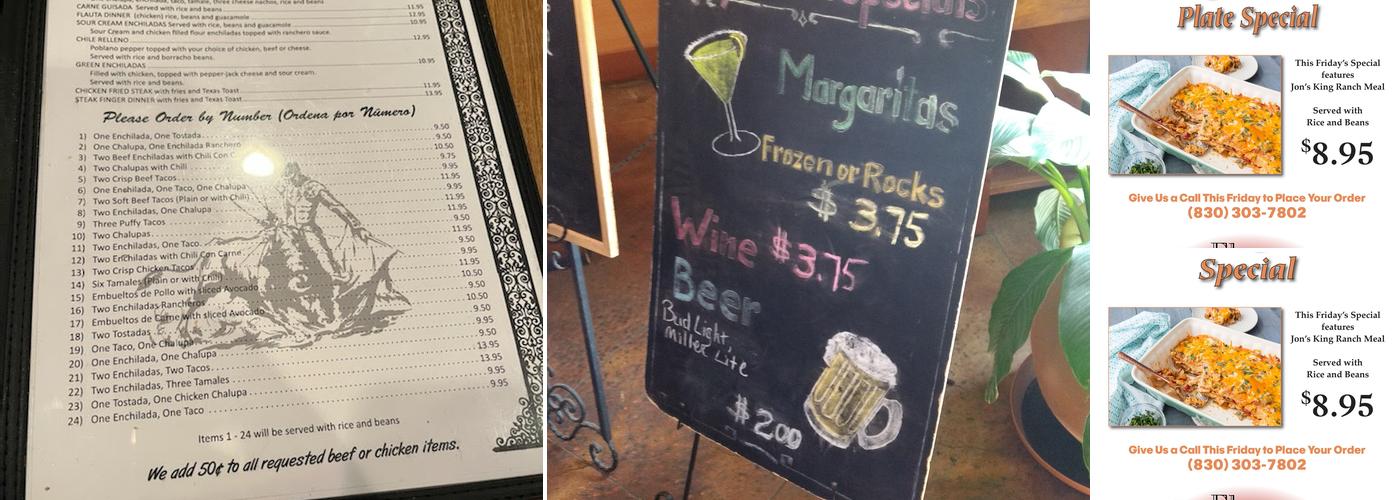 taco, tamale, three cheese nachos, rice and beans
CARNE GUISADA. Served with rice and beans 11.95
FLAUTA DINNER (chicken) rice, beans and guacamole 12.95
SOUR CREAM ENCHILADAS Served with rice, beans and guacamole 10.95
Sour Cream and chicken filled flour enchiladas topped with ranchero sauce.
CHILE RELLENO 12.95
Poblano pepper topped with your choice of chicken, beef or cheese.
Served with rice and borracho beans.
GREEN ENCHILADAS 10.95
Filled with chicken, topped with pepper-jack cheese and sour cream.
Served with rice and beans.
CHICKEN FRIED STEAK with fries and Texas Toast 11.95
STEAK FINGER DINNER with fries and Texas Toast 13.95
Please Order by Number (Ordena por Número)
1) One Enchilada, One Tostada 9.50
2) One Chalupa, One Enchilada Ranchero 9.50
3) Two Beef Enchiladas with Chili Con C 10.50
4) Two Chalupas with Chili 9.75
5) Two Crisp Beef Tacos 9.95
6) One Enchilada, One Taco, One Chalupa 11.95
7) Two Soft Beef Tacos (Plain or with Chili) 9.95
8) Two Enchiladas, One Chalupa 11.95
9) Three Puffy Tacos 11.95
10) Two Chalupas 9.50
11) Two Enchiladas, One Taco 11.95
12) Two Enchiladas with Chili Con Carne 9.50
13) Two Crisp Chicken Tacos 9.95
14) Six Tamales (Plain or with Chili) 11.95
15) Embueltos de Pollo with sliced Avocado 10.50
16) Two Enchiladas Rancheros 9.50
17) Embueltos de Carne with sliced Avocado 10.50
18) Two Tostadas 9.50
19) One Taco, One Chalupa 9.50
20) One Enchilada, One Chalupa 9.50
21) Two Enchiladas, Two Tacos 13.95
22) Two Enchiladas, Three Tamales 13.95
23) One Tostada, One Chicken Chalupa 9.95
24) One Enchilada, One Taco 9.95
Items 1 - 24 will be served with rice and beans
We add 50¢ to all requested beef or chicken items.
Specials
Margaritas
Frozen or Rocks
$ 3.75
Wine $3.75
Beer
Bud Light,
Miller Lite
$2.00
Plate Special
This Friday's Special
features
Jon's King Ranch Meal
Served with
Rice and Beans
$8.95
Give Us a Call This Friday to Place Your Order
(830) 303-7802
El
Special
This Friday's Special
features
Jon's King Ranch Meal
Served with
Rice and Beans
$8.95
Give Us a Call This Friday to Place Your Order
(830) 303-7802